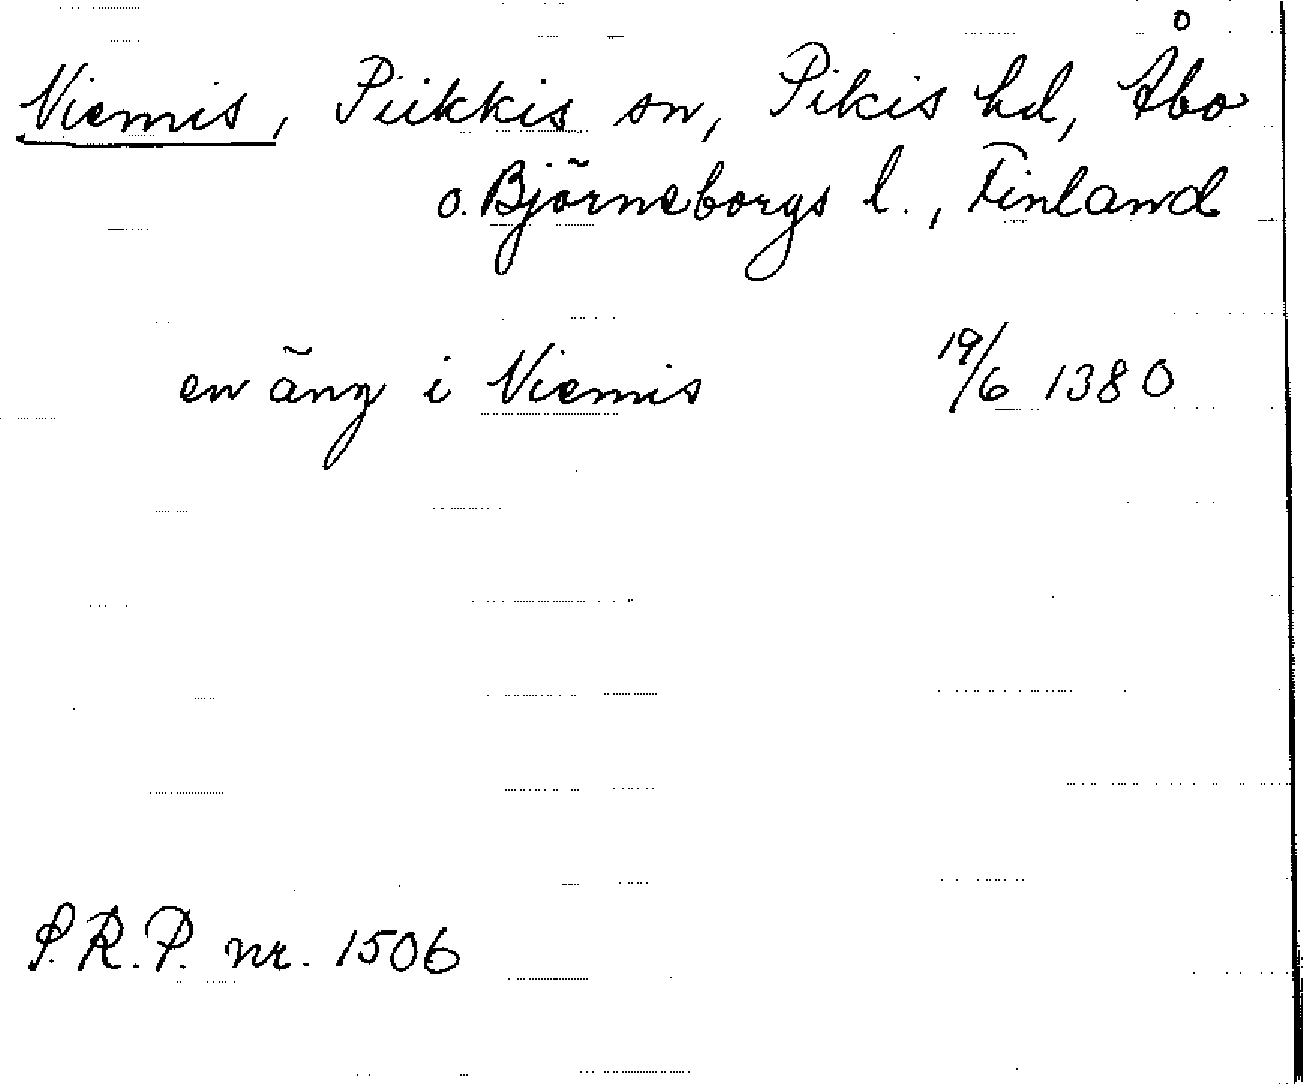 Niemis, Piikkis sn, Pikis hd, Åbo
o. Björneborgs l., Finland
en äng i Niemis 19/6 1380
S.R.P. nr. 1506